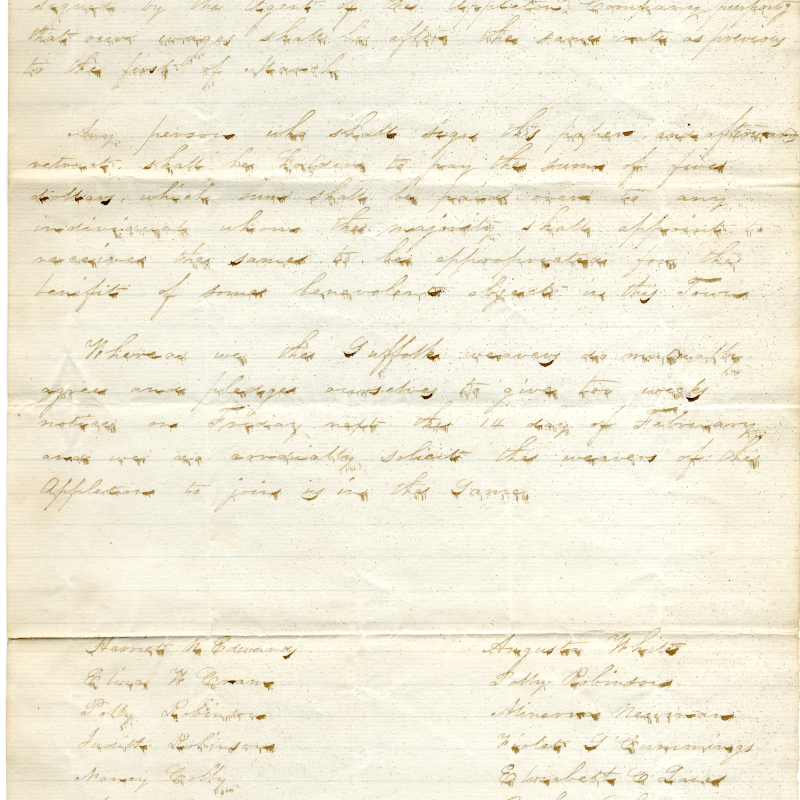 signed by the Agent of the Appleton Company, 
that our wages shall be after the same rate as previous
to the first of March

Any person who shall sign this paper, and afterward
retract shall be holden to pay the sum of five
dollars, which sum shall be paid over to any
individual whom the majority shall appoint to
receive the same to be appropriated for the
benifit of some benevolent object in this Town

Whereas we the Suffolk weavers do mutually
agree and pledge ourselves to give two weeks
notice on Friday next the 14 day of February,
and we do cordially solicit the weavers of the
Appleton to join us in the same

Harriet N Edwards
Eliza W Evans
Polly Robinson
Judith Robinson
Nancy Colby
Augusta White
Polly Robinson
Minerva Newman
Violet G Cummings
Elizabeth C